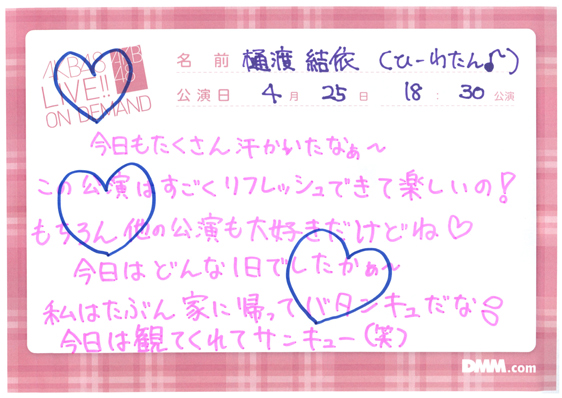 AKB48
LIVE!!
ON DEMAND
AKB
48
名前 樋渡 結依 (ひーわたん♪)
公演日 4月 25日 18:30公演
今日もたくさん汗かいたなぁ～
この公演はすごくリフレッシュできて楽しいの!
もちろん他の公演も大好きだけどね♡
今日はどんな1日でしたかぁ～
私はたぶん家に帰ってバタンキュだな
今日は観てくれてサンキュー(笑)
DMM.com